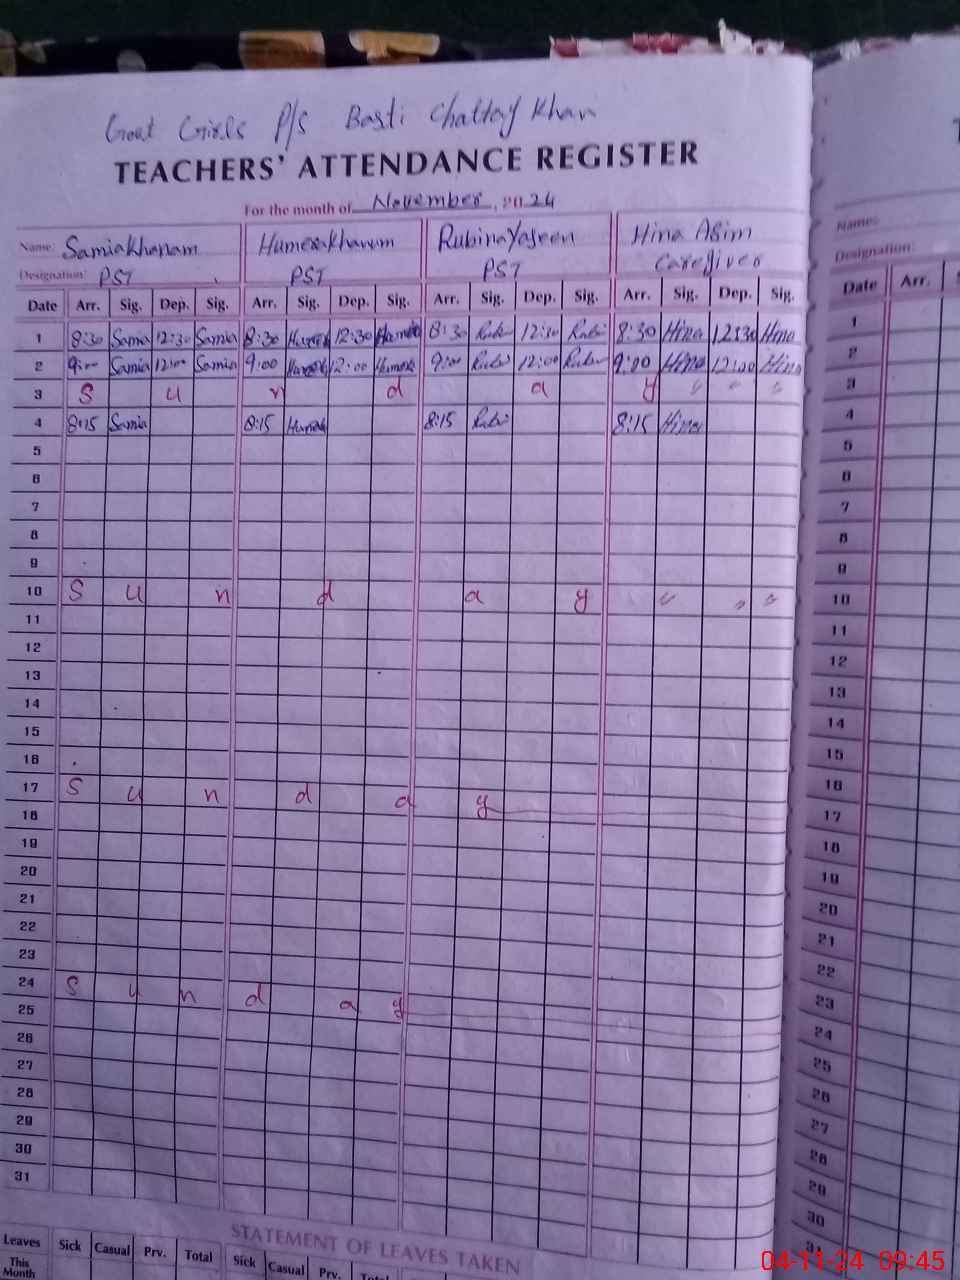 Govt Girls P/S Basti Chattay Khan
TEACHERS' ATTENDANCE REGISTER
For the month of November, 2024
Name: Samia Khanam Humera Khanum Rubina Yaseen Hina Asim
Designation: PST PST PST Caregiver
Date Arr. Sig. Dep. Sig. Arr. Sig. Dep. Sig. Arr. Sig. Dep. Sig. Arr. Sig. Dep. Sig.
1 8:30 Samia 12:30 Samia 8:30 12:30 8:30 Rubi 12:30 Rubi 8:30 Hina 12:30 Hina
2 9:00 Samia 12:00 Samia 9:00 12:00 9:00 Rubi 12:00 Rubi 9:00 Hina 12:00 Hina
3 S u n d a y
4 8:15 Samia 8:15 8:15 Rubi 8:15 Hina
5
6
7
8
9
10 S u n d a y
11
12
13
14
15
16
17 S u n d a y
18
19
20
21
22
23
24 S u n d a y
25
26
27
28
29
30
31
STATEMENT OF LEAVES TAKEN
Leaves Sick Casual Prv. Total Sick Casual Prv.
This Month
Name:
Designation:
Date Arr.
1
2
3
4
5
6
7
8
9
10
11
12
13
14
15
16
17
18
19
20
21
22
23
24
25
26
27
28
29
30
31
04-11-24 09:45